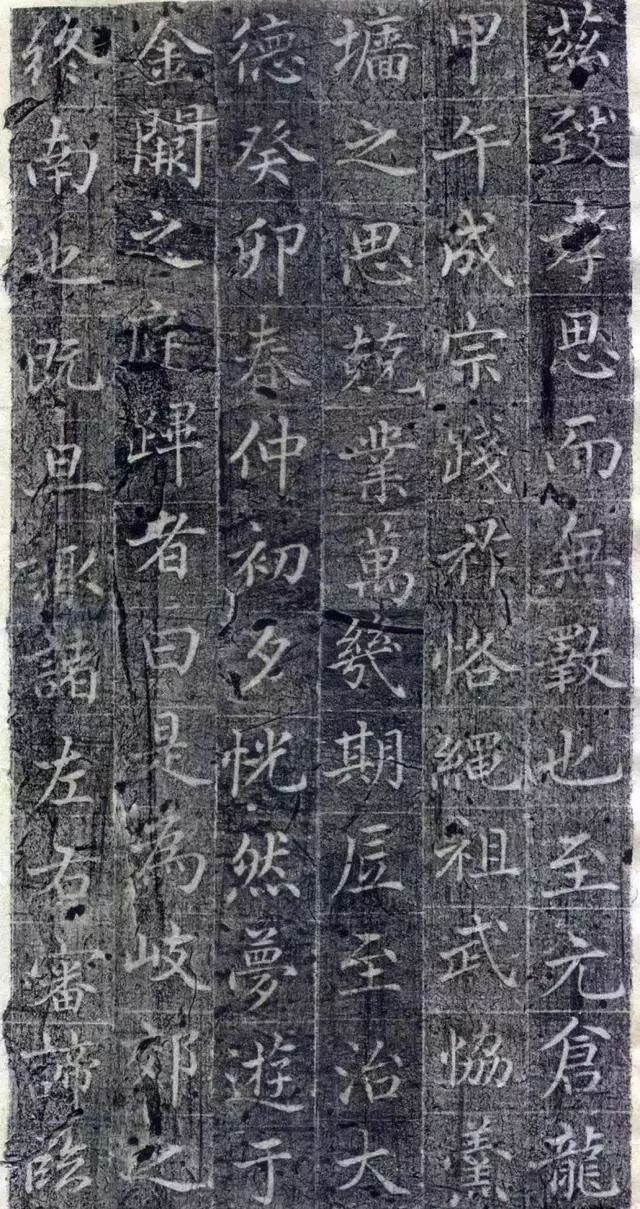 茲致孝思而無斁也至元倉龍
甲午成宗踐祚恪繩祖武恊羹
墻之思兢業萬幾期底至治大
德癸卯春仲初夕恍然夢遊于
金闕之庭蹕者曰是為岐郊之
終南也既旦諏諸左右審諦臨